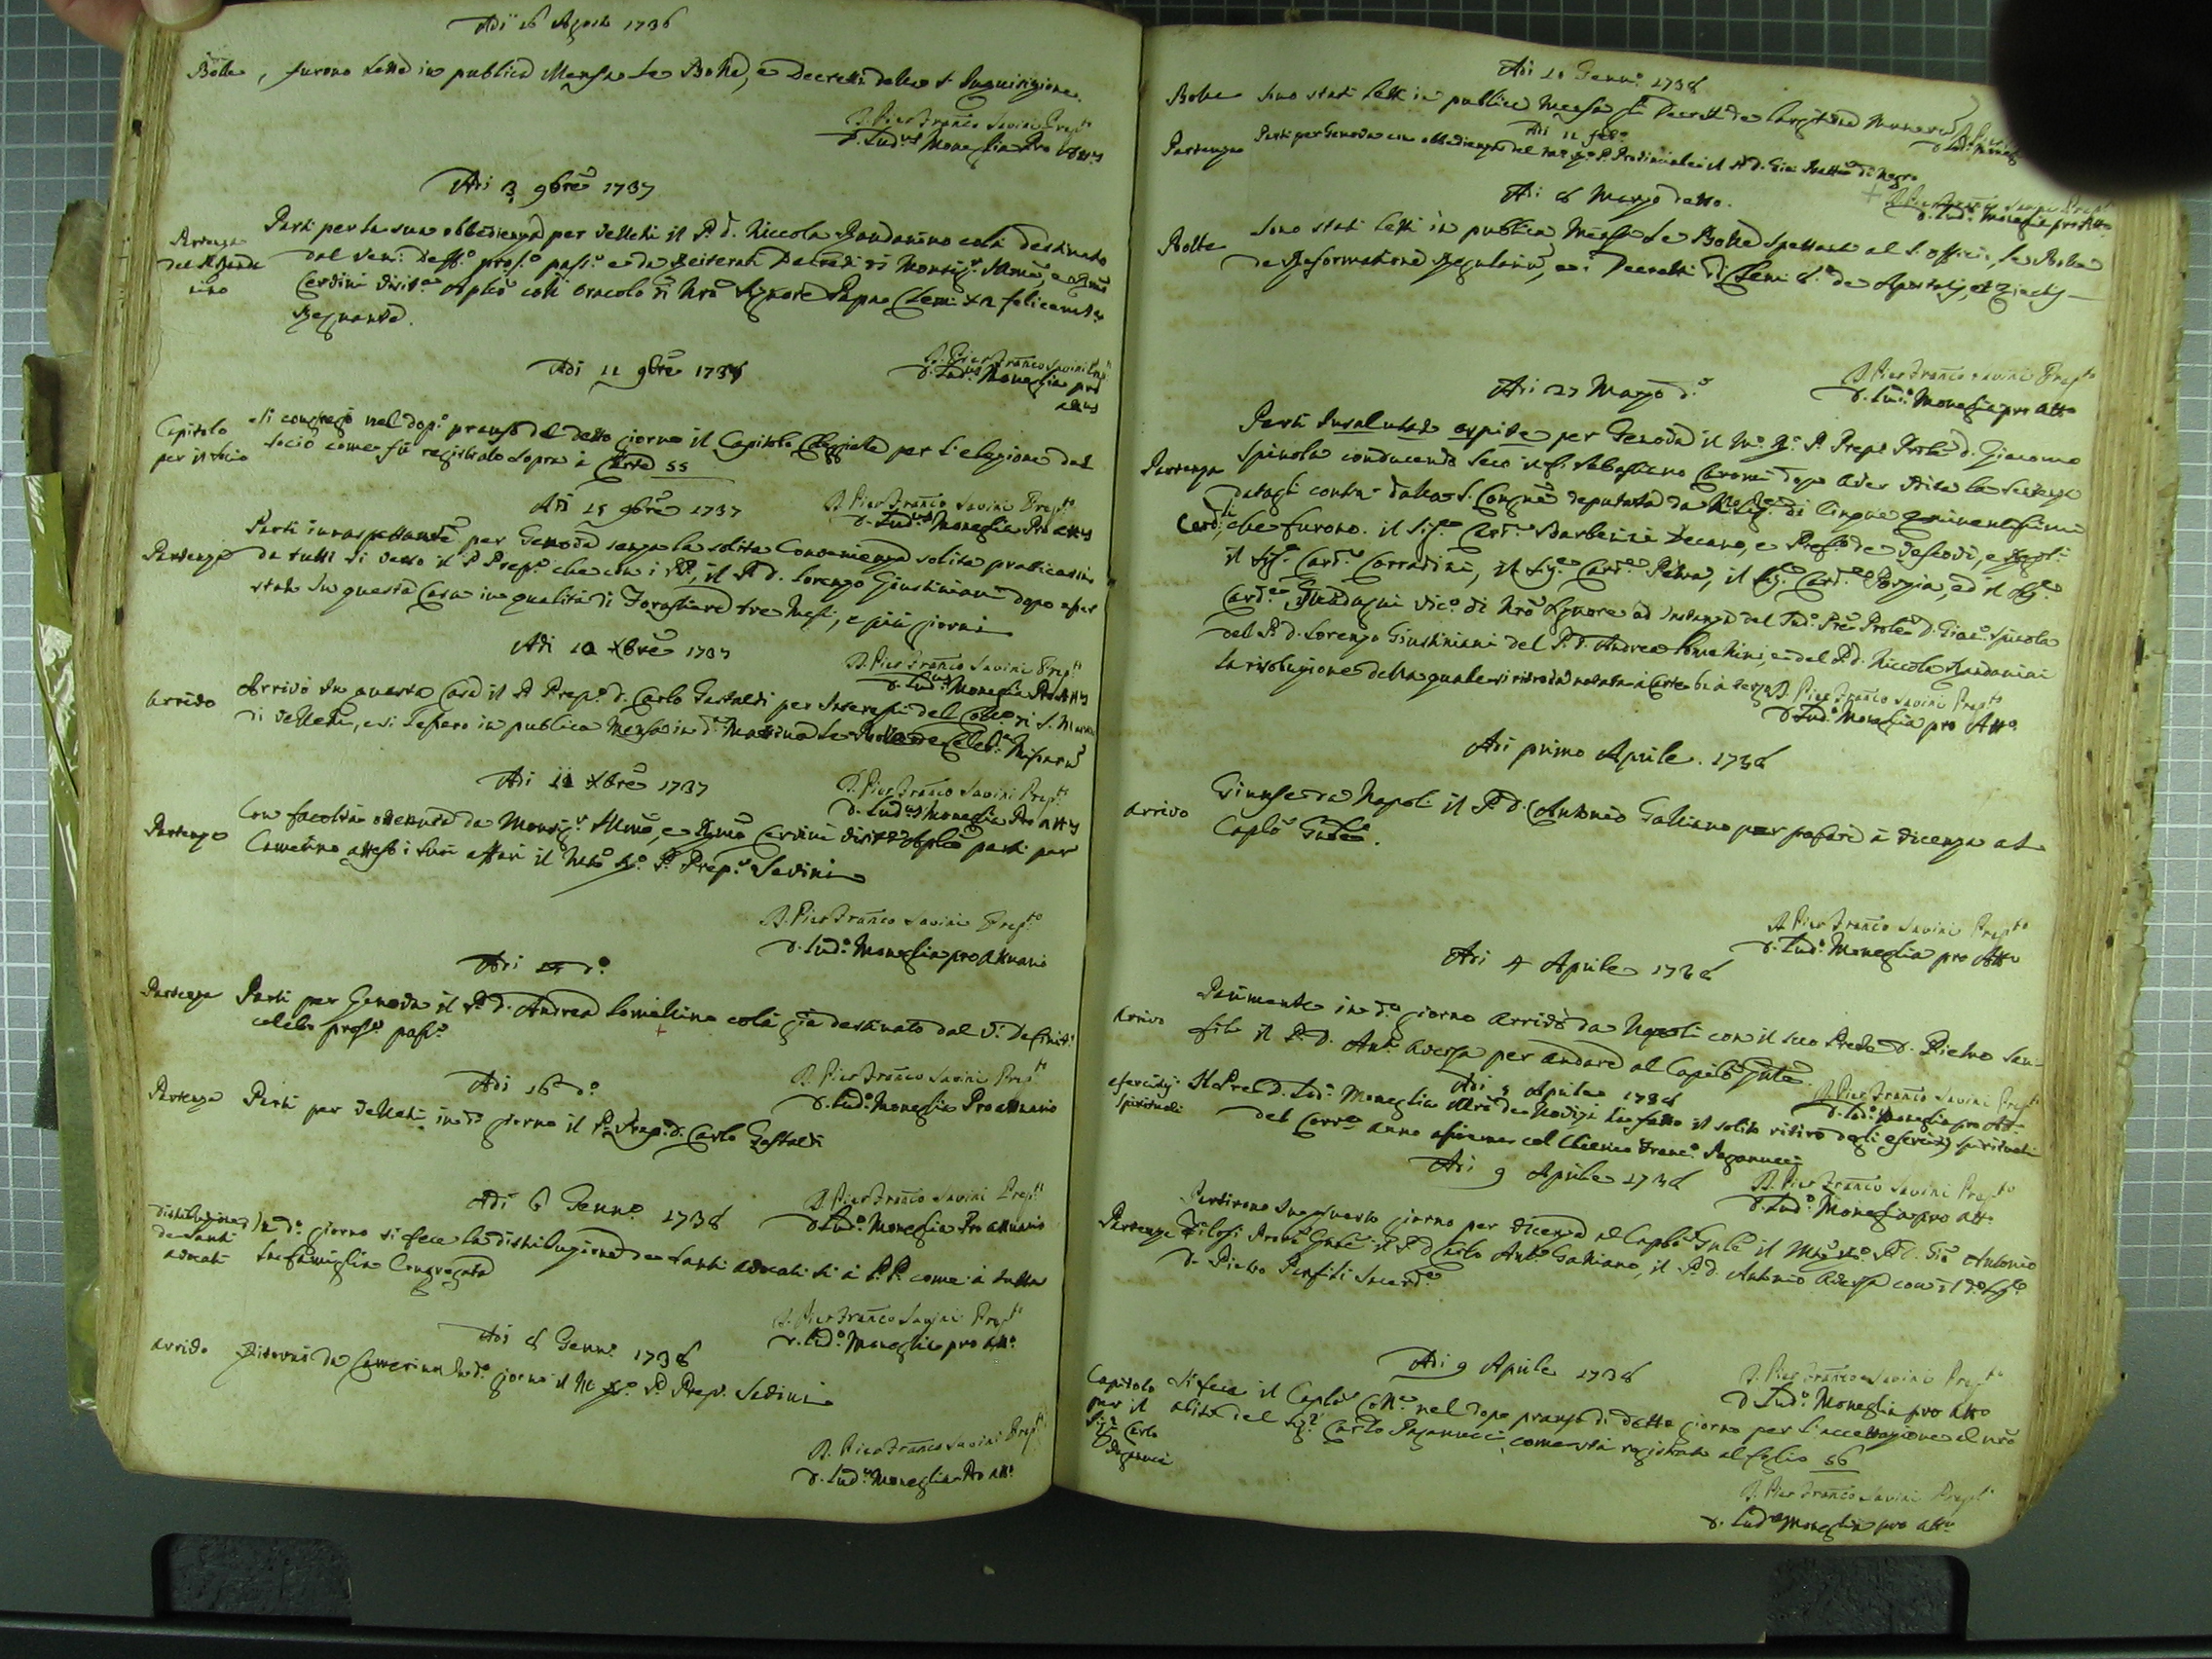 Adi 26 Agosto 1736
Bolle, furono lette in publica Mensa le Bolle, e Decretti della S. Inquisizione.
D. Pier Franco Savini Prepto
D. Ludus Moneglia Pro Attus
Adi 3 9bre 1737
Partenza
Parti per la sua obbedienza per Velletri il P. d. Niccola Randanino colà destinato
dal Ven: Deffo prosso passo e da Reiterati Decreti di Monsigr Illmo, e Rmo
Cerdini Visitre Apliō coll oracolo di Nrō Signore Papa Clem: XII felicemte
Regnante.
D. Pier Franco Savini Prepto
D. Ludus Moneglia pro
attus
Adi 11 9bre 1737
Capitolo
per il socio
Si congregò nel dopo pranso del detto giorno il Capitolo Collegiale per l'elezione del
socio come fù registrato sopra à Carte 55
D. Pier Franco Savini Prepto
D. Ludus Moneglia Pro attus
Adi 15 9bre 1737
Partenza
Parti inaspettante per Genova senza la solita Convenienza solita pratticarsi
da tutti si verso il P. Prepo che con i PP., il P. d. Lorenzo Giustiniani dopo esser
stato In questa Casa in qualità di Forastiere tre mesi, e più giorni
D. Pier Franco Savini Prepto
D. Ludus Moneglia Pro Attus
Adi 10 Xbre 1737
Arrivo
Arrivò In questa Casa il P. Prepo d. Carlo Gastaldi per Interessi del Collo di S. Martino
di Velletri, e si lessero in publica Mensa in da Mattina le Bolle de Celebre Missarum
D. Pier Franco Savini Prepto
D. Ludus Moneglia Pro attus
Adi 11 Xbre 1737
Partenza
Con facoltà ottenuta da Monsigr Illmo, e Rmo Cerdini Visitre Aplico parti per
Camerino attesi i suoi affari il Mto Ro P. Prepo Savini
D. Pier Franco Savini Prepto
D. Ludo Moneglia pro attuario
Adi do
Partenza
Parti per Genova il P. d. Andrea Lomellino colà già destinato dal V. Definito
celebro prosso passo
D. Pier Franco Savini Prepto
D. Ludo Moneglia Pro attuario
Adi 16 do
Partenza
Parti per Velletri in do giorno il P. Prepo d. Carlo Gastaldi
D. Pier Franco Savini Prepto
D. Ludo Moneglia Pro attuario
Adi 6 Genno 1738
distribuzione
de Santi
avocati
In do giorno si fece la distribuzione de Santi avocati si à P.P. come à tutta
la famiglia Congregata
D. Pier Franco Savini Prepto
D. Ludo Moneglia pro atto
Adi 8 Genno 1738
arrivo
Ritornò da Camerino In do giorno il M. Ro P. Prepo Savini
D. Pier Franco Savini Prepto
D. Ludo Moneglia Pro atto
Adi 10 Genno 1738
Bolle
Sono stati letti in publica Mensa gli Decreti de largitione Munerum
Partenza
Parti per Genova con obbedienza del P. Provinciale il P. d. Gio: Batta di Negro
D. Pier Franco Savini Prepto
D. Ludo Moneglia pro Atto
Adi 8 Marzo detto.
Bolle
Sono stati letti in publica Mensa le Bolle spettanti al S. Officio, le Bolle
de Reformatione Regularium, e i Decretti di Clem: 8o de Apostatis, et Eiectis
D. Pier Franco Savini Prepto
D. Ludo Moneglia pro atto
Adi 27 Marzo do
Partenza
Parti Insalutato ospite per Genova il Mo Ro P. Prepo Prole d. Giacomo
Spinola conducendo seco il f. Sebastiano Ceroni dopo aver udita la sentenza
datagli contro dalla S. Congne deputata da N. Sigre di Cinque Eminentissimi
Cardli, che furono. il Sigre Carde Barberini Decano, e Prefto de Vescovi, e Regoli
il Sigre Carde Corradini, il Sigre Carde Petra, il Sigre Carde Porzia, ed il Sigre
Carde Guadagni Vico di Nro Signore ad Instanza del Sudo Pre Prole D. Giaco Spinola
del P. d. Lorenzo Giustiniani del P. D. Andrea Lomellini, e del P. d. Niccola Randanini
la risoluzione della quale si ritrova notata à Carte 61 à tergo
D. Pier Franco Savini Prepto
D. Ludo Moneglia pro Atto
Adi primo Aprile. 1738
Arrivo
Giunse da Napoli il P. d. Antonio Galliano per passare à Vicenza al
Caplō Gnale.
D. Pier Franco Savini Prepto
D. Ludo Moneglia pro Atto
Adi 4 Aprile 1738
Arrivo
Parimente in do giorno arrivò da Napoli con il suo Prete D. Pietro Ser-
fili il P. D. Anto Aversa per andare al Capilo Gnle.
D. Pier Franco Savini Prepto
D. Ludo Moneglia pro att.
Adi 5 Aprile 1738
esercizij
spirituali
Il Pre D. Ludo Moneglia Mro de Novizi ha fatto il solito ritiro degli esercizij spirituali
del Corrte anno assieme col Chierico Franco Paganucci
D. Pier Franco Savini Prepto
D. Ludo Moneglia pro atto
Adi 9 Aprile 1738
Partenza
Partirono In questo giorno per Vicenza al Caplō Gnle il Mto Ro P. D. Gio Antonio
Filossi Proc Gnle il P. D. Carlo Anto Galliano, il P. d. Antonio Aversa con il do
D. Pietro Perfili Sacerde
D. Pier Franco Savini Prepto
D. Ludo Moneglia pro atto
Adi 9 Aprile 1738
Capitolo
per il
Sigr Carlo
Paganucci
Si fece il Caplō Colle nel dopo pranso di detto giorno per l'accettazione al nrō
abito del Sigr Carlo Paganucci, come stà registrato al foglio 56
D. Pier Franco Savini Prepto
D. Ludo Moneglia pro atto